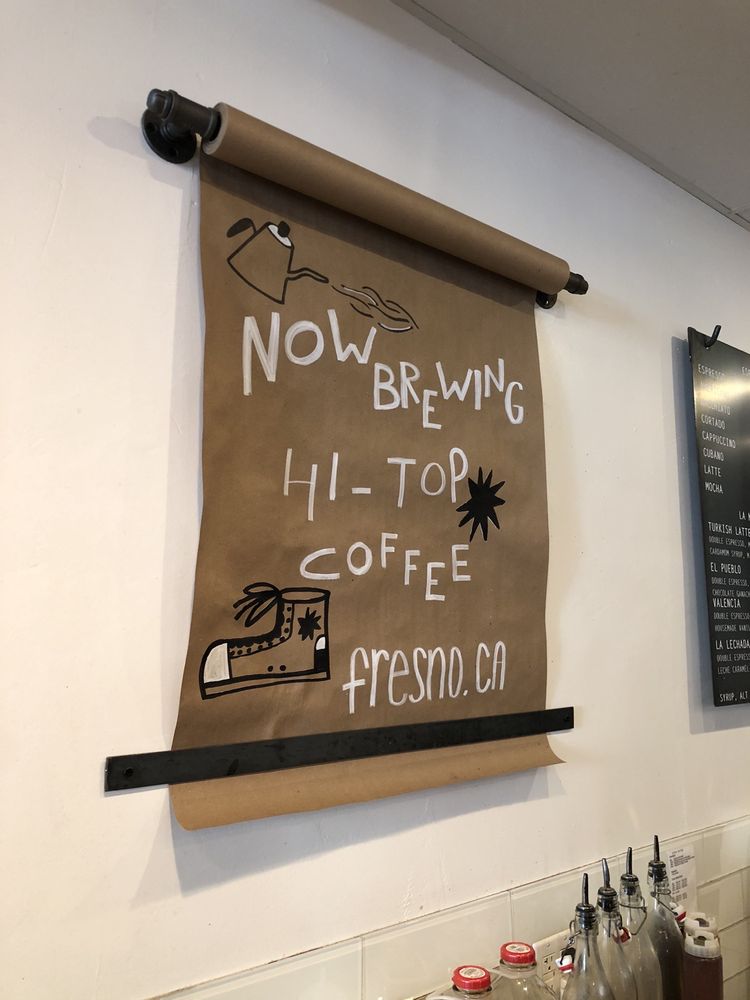 NOW
BREWING
HI-TOP
COFFEE
fresno.ca
ESPRESSO
CORTADO
CAPPUCCINO
CUBANO
LATTE
MOCHA
LA
TURKISH LATTE
DOUBLE ESPRESSO,
CARDAMOM SYRUP,
EL PUEBLO
DOUBLE ESPRESSO,
CHOCOLATE
VALENCIA
DOUBLE ESPRESSO,
HOUSEMADE
LA LECHADA
DOUBLE
LECHE
SYRUP, ALT